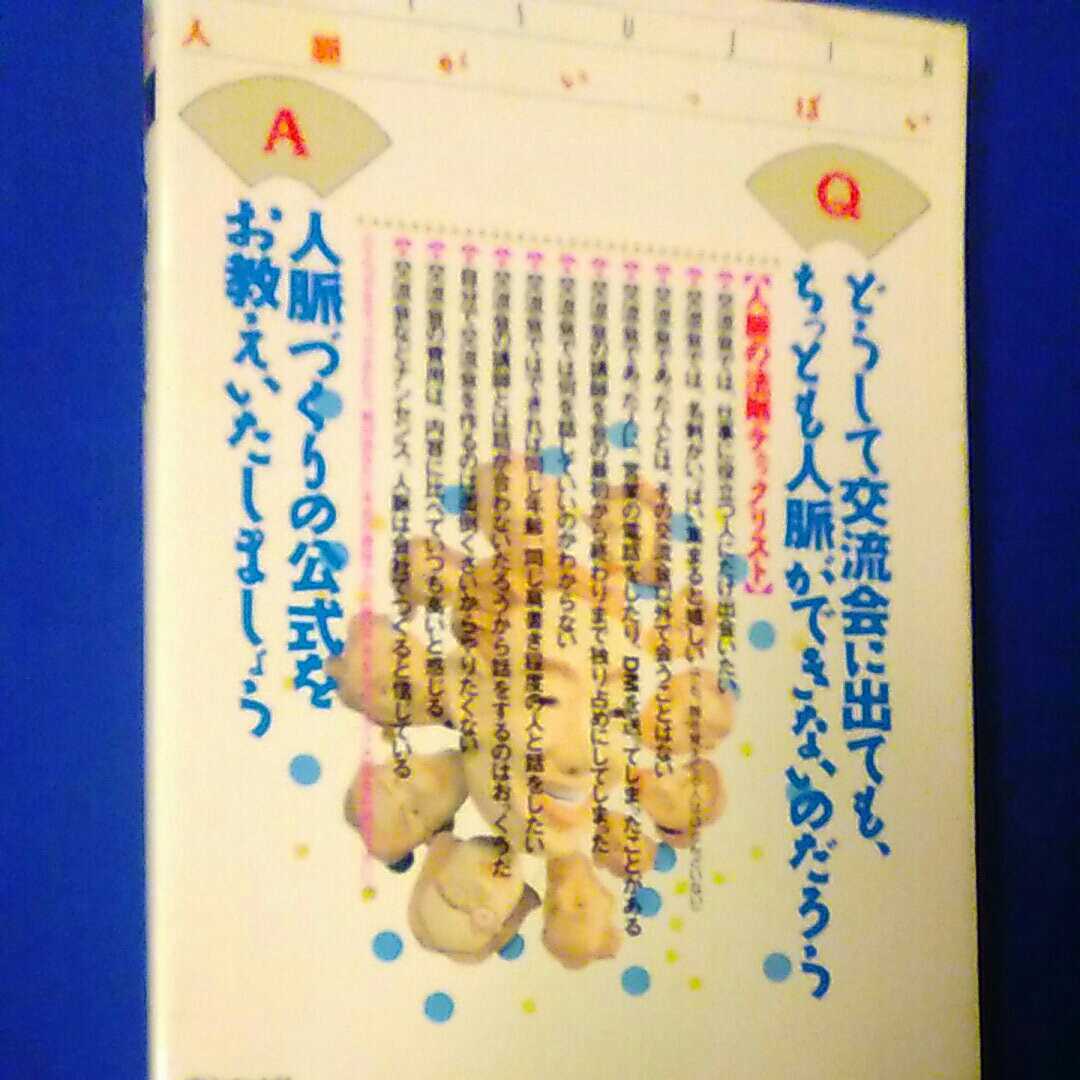 人脈がいっぱい
Q
どうして交流会に出ても、
ちっとも人脈ができないのだろう
【人脈の法則チェックリスト】
交流会では、仕事に役立つ人にだけ出会いたい
交流会では、名刺がいっぱい集まると嬉しい
交流会であった人とは、その交流会以外で会うことはない
交流会であった人に、営業の電話をしたり、DMを出してしまったことがある
交流会の講師を、会の最初から終わりまで独り占めにしてしまった
交流会では何を話していいのかわからない
交流会ではできれば同じ年齢、同じ肩書き程度の人と話をしたい
交流会の講師とは話が合わないだろうから話をするのはおっくうだ
自分で交流会を作るのは面倒くさいからやりたくない
交流会の費用は、内容にくらべていつも高いと感じる
交流会などナンセンス、人脈は会社でつくると信じている
A
人脈づくりの公式を
お教えいたしましょう